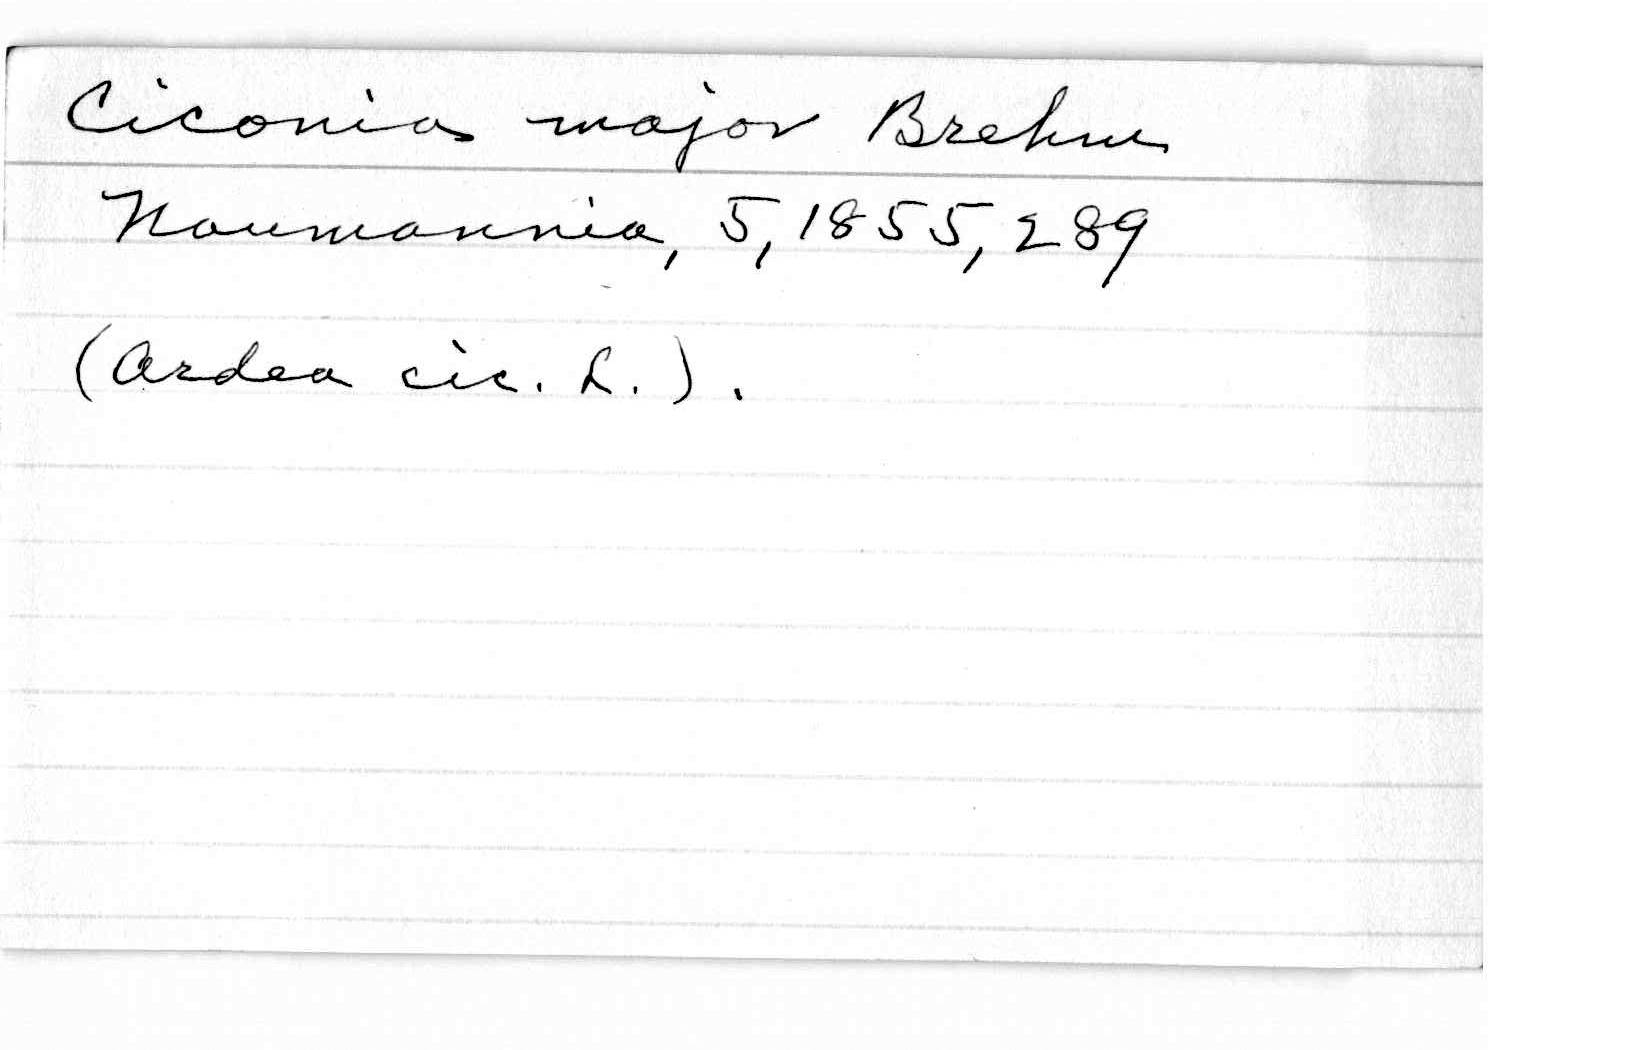 Ciconia major Brehm
Naumannia, 5, 1855, 289
(Ardea cic. L.).